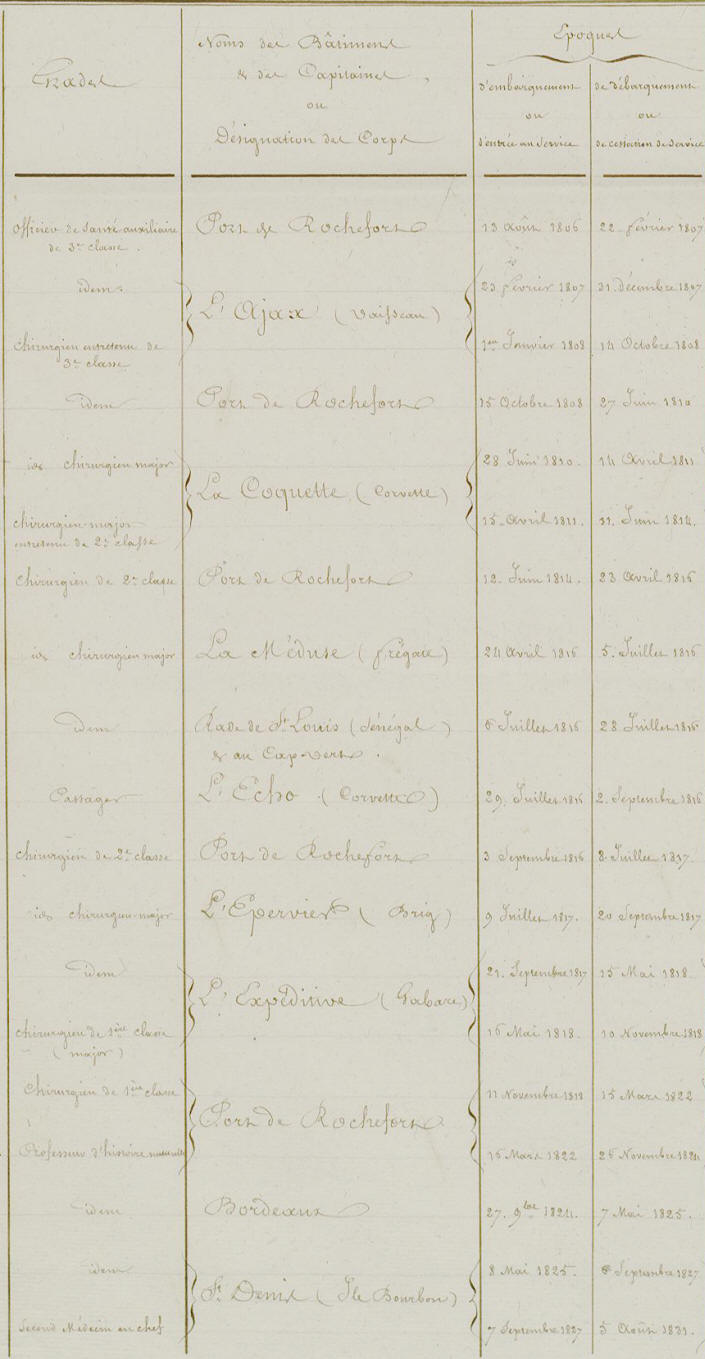 Grades
Noms des Bâtiments
& des Capitaines,
ou
Désignation des Corps
Epoques
d'embarquement
ou
d'entrée au Service
de débarquement
ou
de cessation de Service
officier de santé auxiliaire
de 3e classe.
Port de Rochefort
13 Août 1806
22 février 1807
idem.
L'Ajax (Vaisseau)
23 février 1807
31 décembre 1807
chirurgien entretenu de
3e classe
1er Janvier 1808
14 Octobre 1808
idem
Port de Rochefort
15 Octobre 1808
27 Juin 1810
id. chirurgien major
La Coquette (Corvette)
28 Juin 1810.
14 Avril 1811
chirurgien-major
entretenu de 2e classe
15. Avril 1811.
11. Juin 1814.
chirurgien de 2e classe
Port de Rochefort
12. Juin 1814.
23 Avril 1816
id. chirurgien major
La Méduse (frégate)
24 Avril 1816
5. Juillet 1816
idem
Rade de St. Louis (Sénégal)
& au Cap-vert.
6 Juillet 1816
28 Juillet 1816
Passager
L'Echo (Corvette)
29. Juillet 1816
2. Septembre 1816
chirurgien de 2e classe
Port de Rochefort
3 Septembre 1816
8. Juillet 1817.
id. chirurgien-major
L'Epervier (Brig)
9 Juillet 1817.
20 Septembre 1817
idem
L'Expéditive (Gabare)
21. Septembre 1817
15 Mai 1818.
chirurgien de 1ère classe
(major)
16 Mai 1818.
10 Novembre 1818
Chirurgien de 1ère classe
Port de Rochefort
11 Novembre 1818
15 Mars 1822
Professeur d'histoire naturelle
16 Mars 1822
26 Novembre 1824
idem
Bordeaux
27. 9bre 1824.
7 Mai 1825.
idem
St. Denis (Ile Bourbon)
8 Mai 1825.
6 Septembre 1827
Second Médecin en chef
7 Septembre 1827
5 Août 1831.